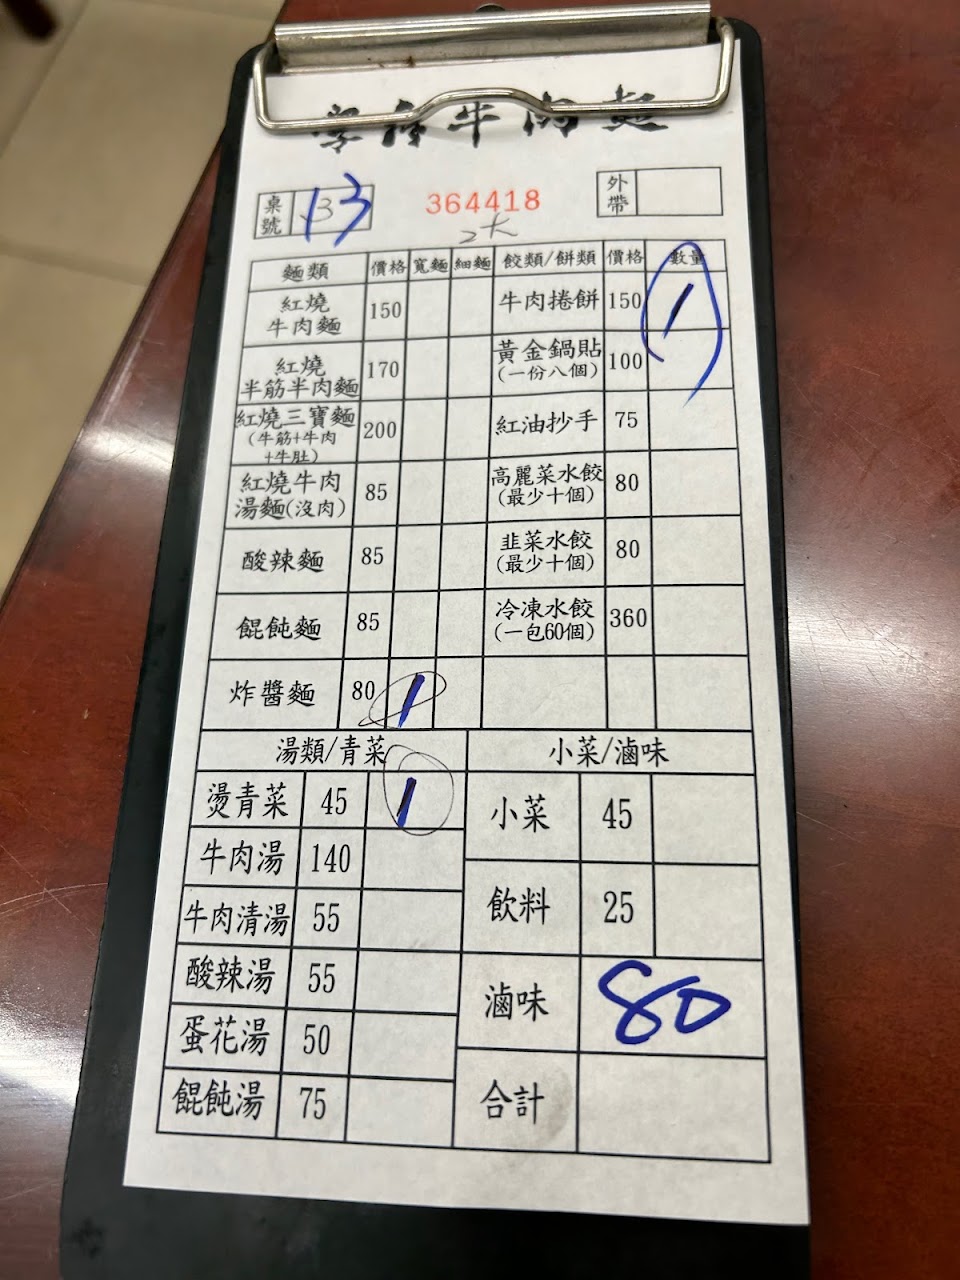 牛肉麵
桌號 13
364418
外帶
2大
麵類 價格 寬麵 細麵 餃類/餅類 價格 數量
紅燒牛肉麵 150 牛肉捲餅 150 1
紅燒半筋半肉麵 170 黃金鍋貼(一份八個) 100
紅燒三寶麵(牛筋+牛肉+牛肚) 200 紅油抄手 75
紅燒牛肉湯麵(沒肉) 85 高麗菜水餃(最少十個) 80
酸辣麵 85 韭菜水餃(最少十個) 80
餛飩麵 85 冷凍水餃(一包60個) 360
炸醬麵 80 1
湯類/青菜 小菜/滷味
燙青菜 45 1 小菜 45
牛肉湯 140
牛肉清湯 55 飲料 25
酸辣湯 55 滷味 80
蛋花湯 50
餛飩湯 75 合計